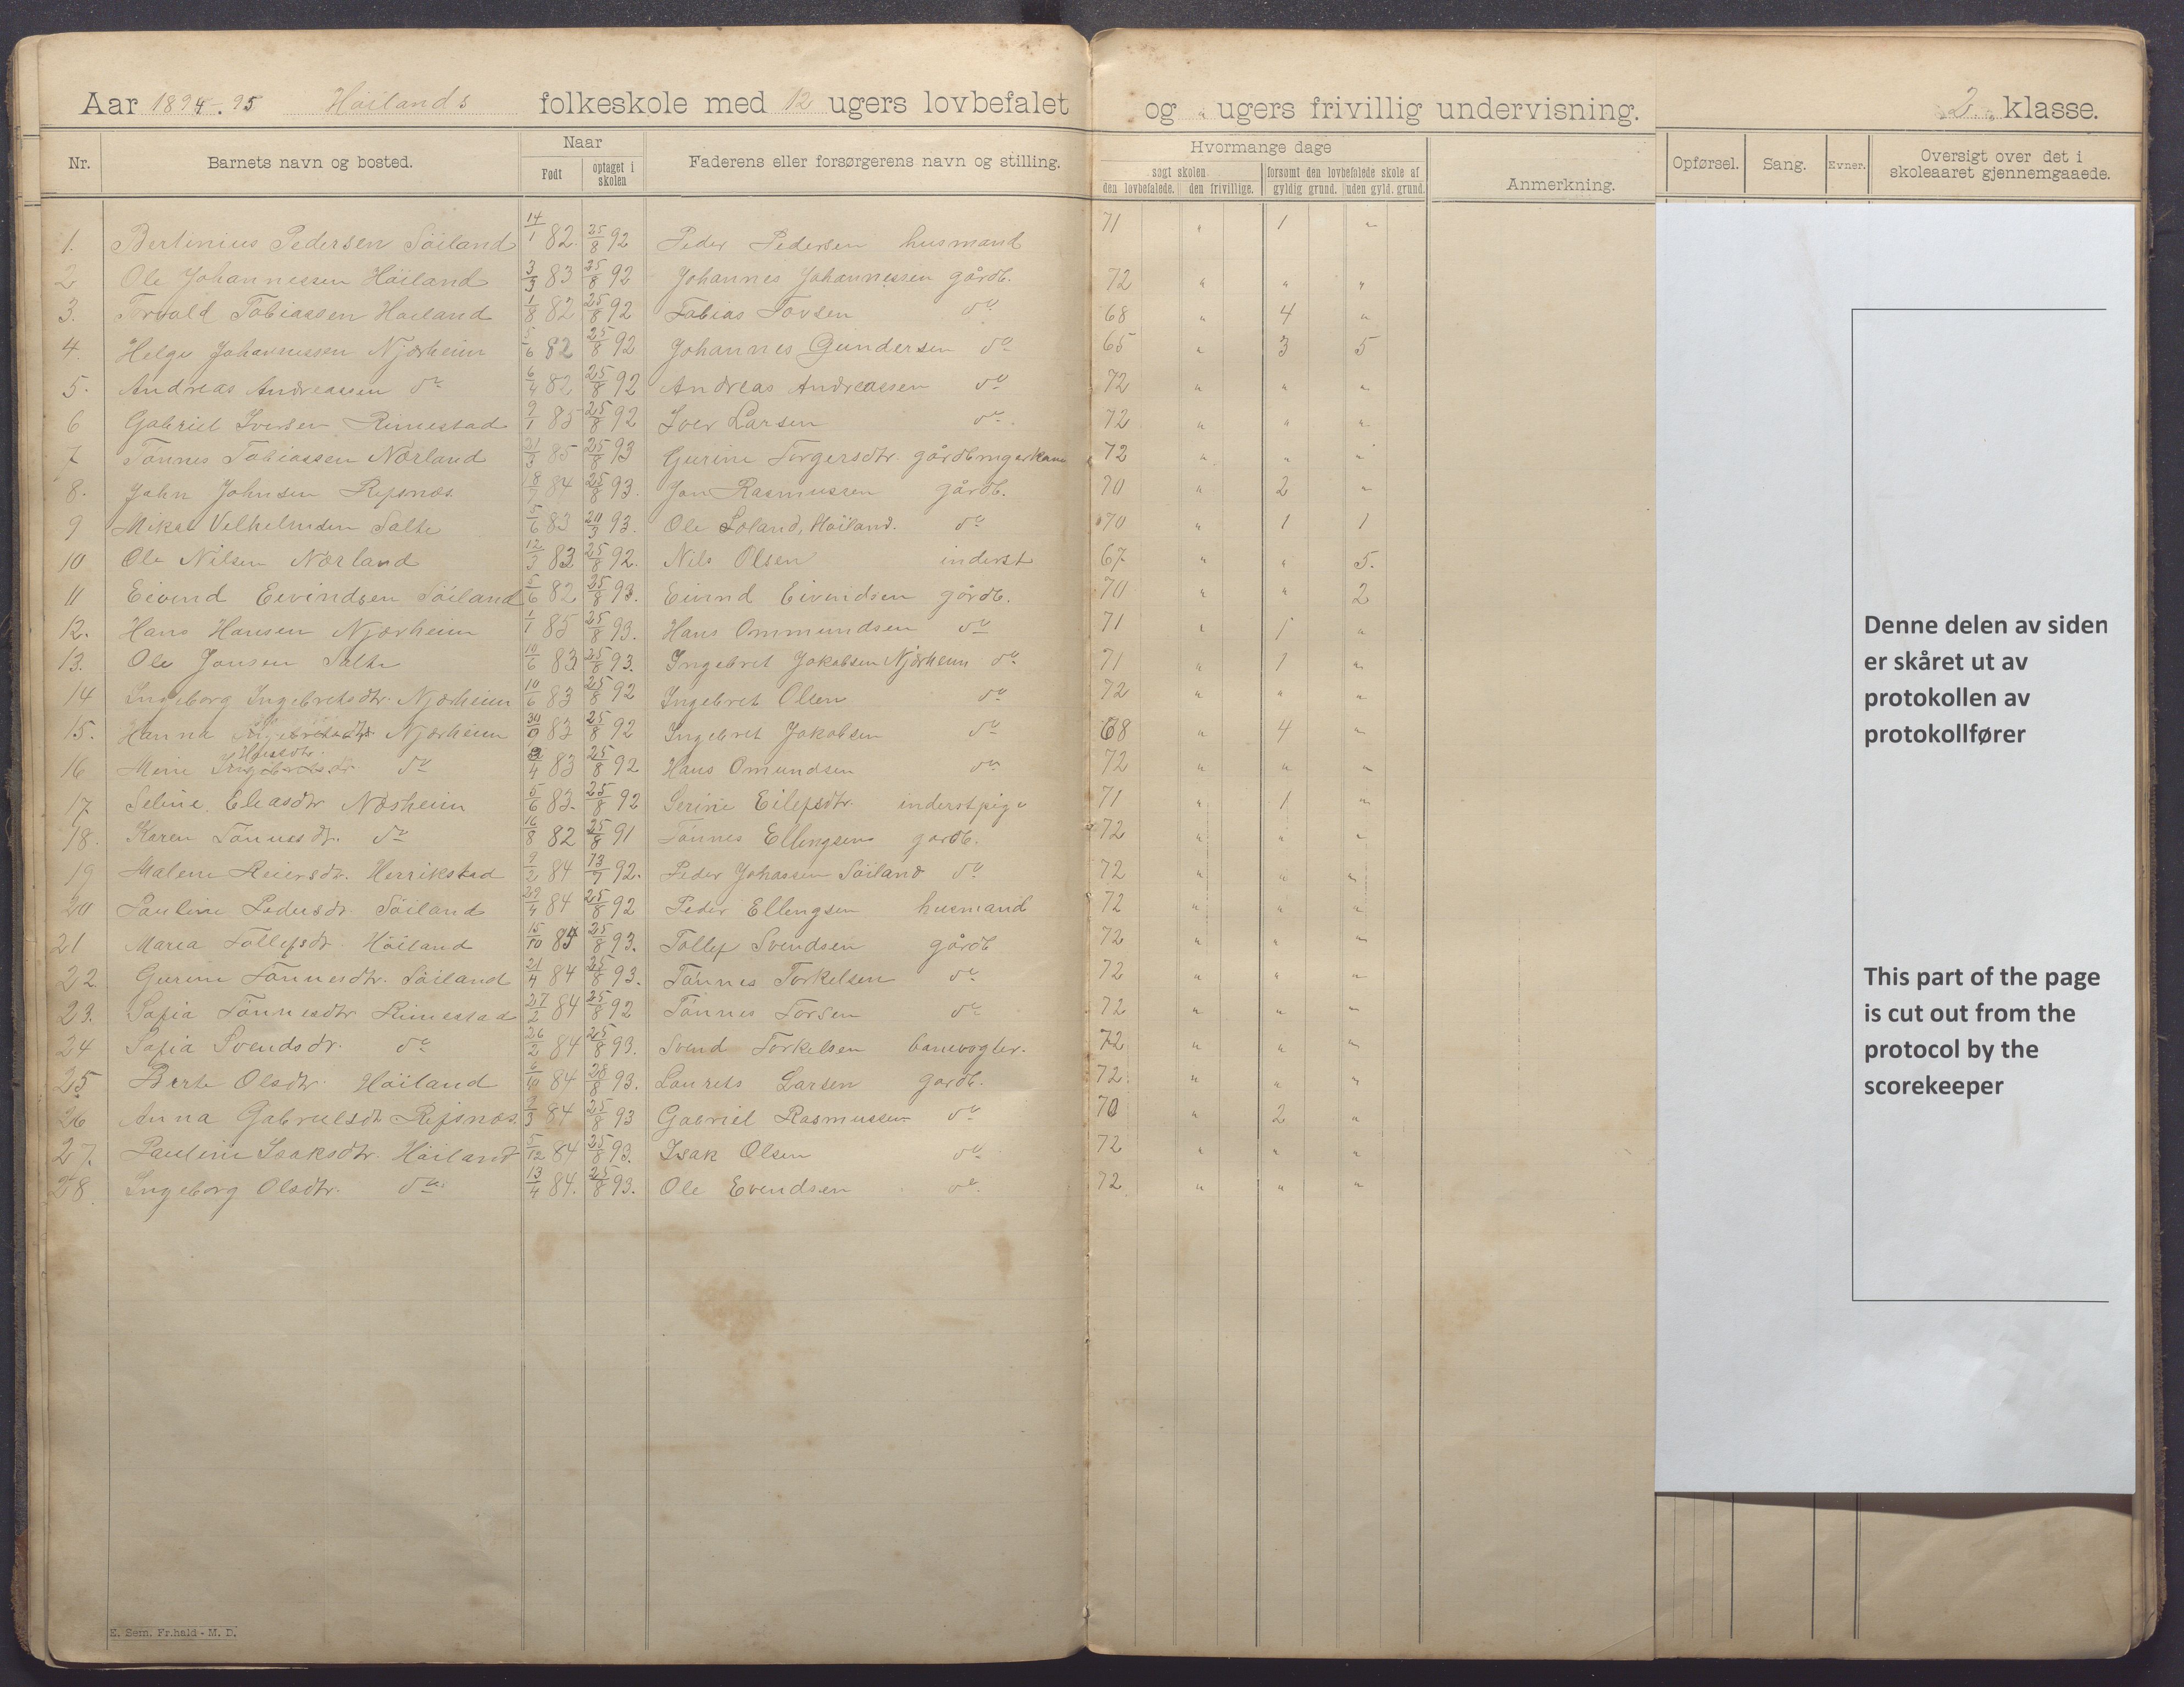 Aar 1894-95 Höilands folkeskole med 12 ugers lovbefalet og " ugers frivillig undervisning. 2. klasse.
Nr. Barnets navn og bosted. Naar Født optaget i skolen Faderens eller forsørgerens navn og stilling. Hvormange dage søgt skolen den lovbefalede. den frivillige. forsømt den lovbefalede skole af gyldig grund. uden gyld. grund. Anmerkning. Opførsel. Sang. Evner. Oversigt over det i skoleaaret gjennemgaaede.
1. Bertinius Pedersen Söiland 14/1 82. 25/8 92 Peder Pedersen husmand 71 " 1 "
2 Ole Johannessen Höiland 3/3 83 25/8 92 Johannes Johannessen gårdb. 72 " " "
3. Torvald Tobiassen Höiland 1/8 82 25/8 92 Tobias Tovsen do 68 " 4 "
4. Helge Johannessen Njærheim 5/6 82 25/8 92 Johannes Gundersen do 65 " 3 5
5. Andreas Andreassen do 6/4 82 25/8 92 Andreas Andreassen do 72 " " "
6 Gabriel Iversen Rimestad 9/1 85 25/8 92 Iver Larsen do. 72 " " "
7 Tönnes Tobiassen Nærland 21/3 85 25/8 93 Gurine Torgersdtr. gårdbrugerkone 72 " " "
8. John Johnsen Refsnæs 18/7 84 25/8 93. Jon Rasmussen gårdb. 70 " 2 "
9 Mikal Velhelmsen Salte 5/6 83 20/3 93. Ole Loland, Höiland. do 70 " 1 1
10 Ole Nilsen Nærland 12/3 83 25/8 92. Nils Olsen inderst 67 " " 5.
11 Eivind Eivindsen Söiland 5/6 82 25/8 93. Eivind Eivindsen gårdb. 70 " " 2
12. Hans Hansen Njærheim 1/1 85 25/8 93. Hans Ommundsen do 71 " 1 "
13. Ole Jonsen Salte 10/6 83 25/8 93. Ingebret Jakobsen Njærheim do 71 " 1 "
14 Ingeborg Ingebretsdtr. Njærheim 10/6 83 25/8 92 Ingebret Olsen do 72 " " "
15. Hanna Ingebretsdtr Njærheim 30/9 83 25/8 92 Ingebret Jakobsen do 68 " 4 "
Hansdtr.
16 Meine Ingebretsdtr. do 83 25/8 92 Hans Omundsen do 72 " " "
17 Seline Eliasdtr Næsheim 5/6 83. 25/8 92 Serine Eilefsdtr. inderstpige 71 " 1 "
18. Karen Tönnesdtr. do 16/8 82 25/8 91 Tönnes Ellingsen gardb. 72 " " "
19 Malene Reiersdtr. Herrikstad 9/2 84 13/7 92. Peder Johassen Söiland do 72 " " "
20 Pauline Pedersdtr. Söiland 29/4 84 25/8 92 Peder Ellengsen husmand 72 " " "
21 Maria Tollefsdtr. Höiland 15/10 83 25/8 93. Tollef Svendsen gårdb 72 " " "
22. Gurine Tönnesdtr. Söiland 21/4 84 25/8 93. Tönnes Torkelsen do 72 " " "
23. Sofia Tönnesdtr Rimestad 27/2 84 25/8 92 Tönnes Torsen do 72 " " "
24 Sofia Svendsdtr. do 26/2 84 25/8 93. Svend Torkelsen banevogter. 72 " " "
25 Berte Olsdtr. Höiland 6/10 84 28/8 93. Laurits Larsen gardb. 72 " " "
26 Anna Gabrielsdtr Refsnæs. 9/3 84 25/8 93 Gabriel Rasmussen do 70 " 2 "
27. Pauline Isaksdtr. Höiland 5/12 84 25/8 93. Isak Olsen do 72 " " "
28. Ingeborg Olsdtr. do 13/4 84. 25/8 93. Ole Evendsen do 72 " " "
E. Sem. Fr.hald - M. D.
Denne delen av siden
er skåret ut av
protokollen av
protokollfører
This part of the page
is cut out from the
protocol by the
scorekeeper